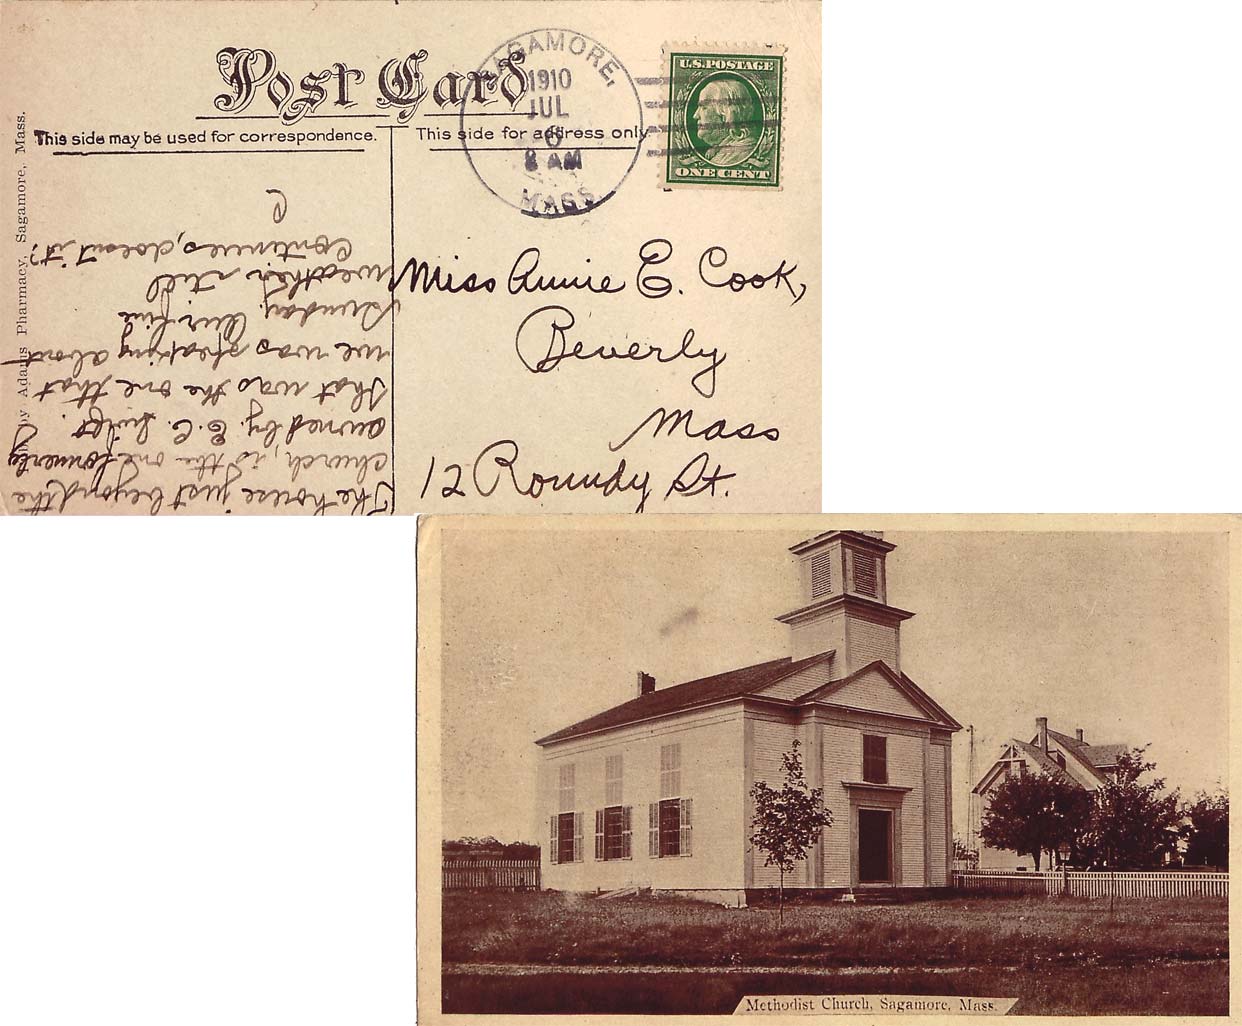 Post Card
This side may be used for correspondence.
This side for address only
SAGAMORE,
1910
JUL
6
8 AM
MASS.
U.S. POSTAGE
ONE CENT
by Adams Pharmacy, Sagamore, Mass.
The house just beyond the
church, is the one formerly
owned by. E. C.
That was the one that
we was speaking about
Sunday. Our fine
weather still
continues, doesn't it?
C
Miss Annie E. Cook,
Beverly
Mass
12 Roundy St.
Methodist Church, Sagamore, Mass.